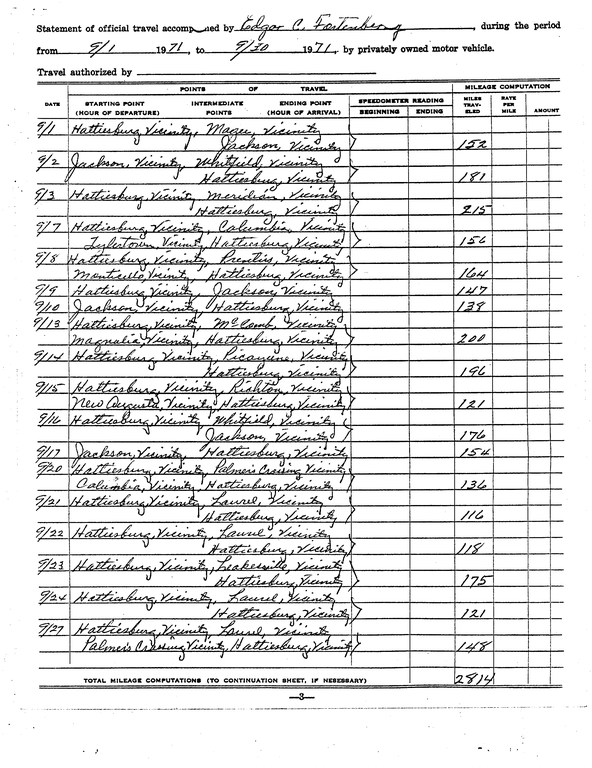 Statement of official travel accompanied by Edgar C. Fortenberry, during the period
from 9/1 1971, to 9/30 1971, by privately owned motor vehicle.
Travel authorized by
POINTS OF TRAVEL MILEAGE COMPUTATION
DATE STARTING POINT (HOUR OF DEPARTURE) INTERMEDIATE POINTS ENDING POINT (HOUR OF ARRIVAL) SPEEDOMETER READING BEGINNING ENDING MILES TRAV-ELED RATE PER MILE AMOUNT
9/1 Hattiesburg Vicinity, Magee, Vicinity
Jackson, Vicinity 152
9/2 Jackson, Vicinity, Whitfield, Vicinity
Hattiesburg, Vicinity 181
9/3 Hattiesburg, Vicinity, Meridian, Vicinity
Hattiesburg, Vicinity 215
9/7 Hattiesburg, Vicinity, Columbia, Vicinity
Tylertown, Vicinity, Hattiesburg, Vicinity 156
9/8 Hattiesburg, Vicinity, Prentiss, Vicinity
Monticello, Vicinity, Hattiesburg, Vicinity 164
9/9 Hattiesburg, Vicinity, Jackson, Vicinity 147
9/10 Jackson, Vicinity, Hattiesburg, Vicinity 138
9/13 Hattiesburg, Vicinity, McComb, Vicinity
Magnolia, Vicinity, Hattiesburg, Vicinity 200
9/14 Hattiesburg, Vicinity, Picayune, Vicinity
Hattiesburg, Vicinity 196
9/15 Hattiesburg, Vicinity, Richton, Vicinity
New Augusta, Vicinity, Hattiesburg, Vicinity 121
9/16 Hattiesburg, Vicinity, Whitfield, Vicinity
Jackson, Vicinity 176
9/17 Jackson, Vicinity, Hattiesburg, Vicinity 154
9/20 Hattiesburg, Vicinity, Palmers Crossing Vicinity
Columbia, Vicinity, Hattiesburg, Vicinity 136
9/21 Hattiesburg, Vicinity, Laurel, Vicinity
Hattiesburg, Vicinity 116
9/22 Hattiesburg, Vicinity, Laurel, Vicinity
Hattiesburg, Vicinity 118
9/23 Hattiesburg, Vicinity, Leakesville, Vicinity
Hattiesburg, Vicinity 175
9/24 Hattiesburg, Vicinity, Laurel, Vicinity
Hattiesburg, Vicinity 121
9/27 Hattiesburg, Vicinity, Laurel, Vicinity
Palmers Crossing Vicinity, Hattiesburg, Vicinity 148
TOTAL MILEAGE COMPUTATIONS (TO CONTINUATION SHEET, IF NESESSARY) 2814
—3—